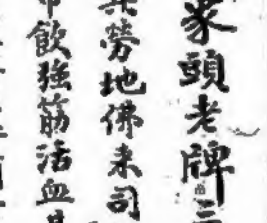 家頭老牌
勞地佛來司
飲強筋活血